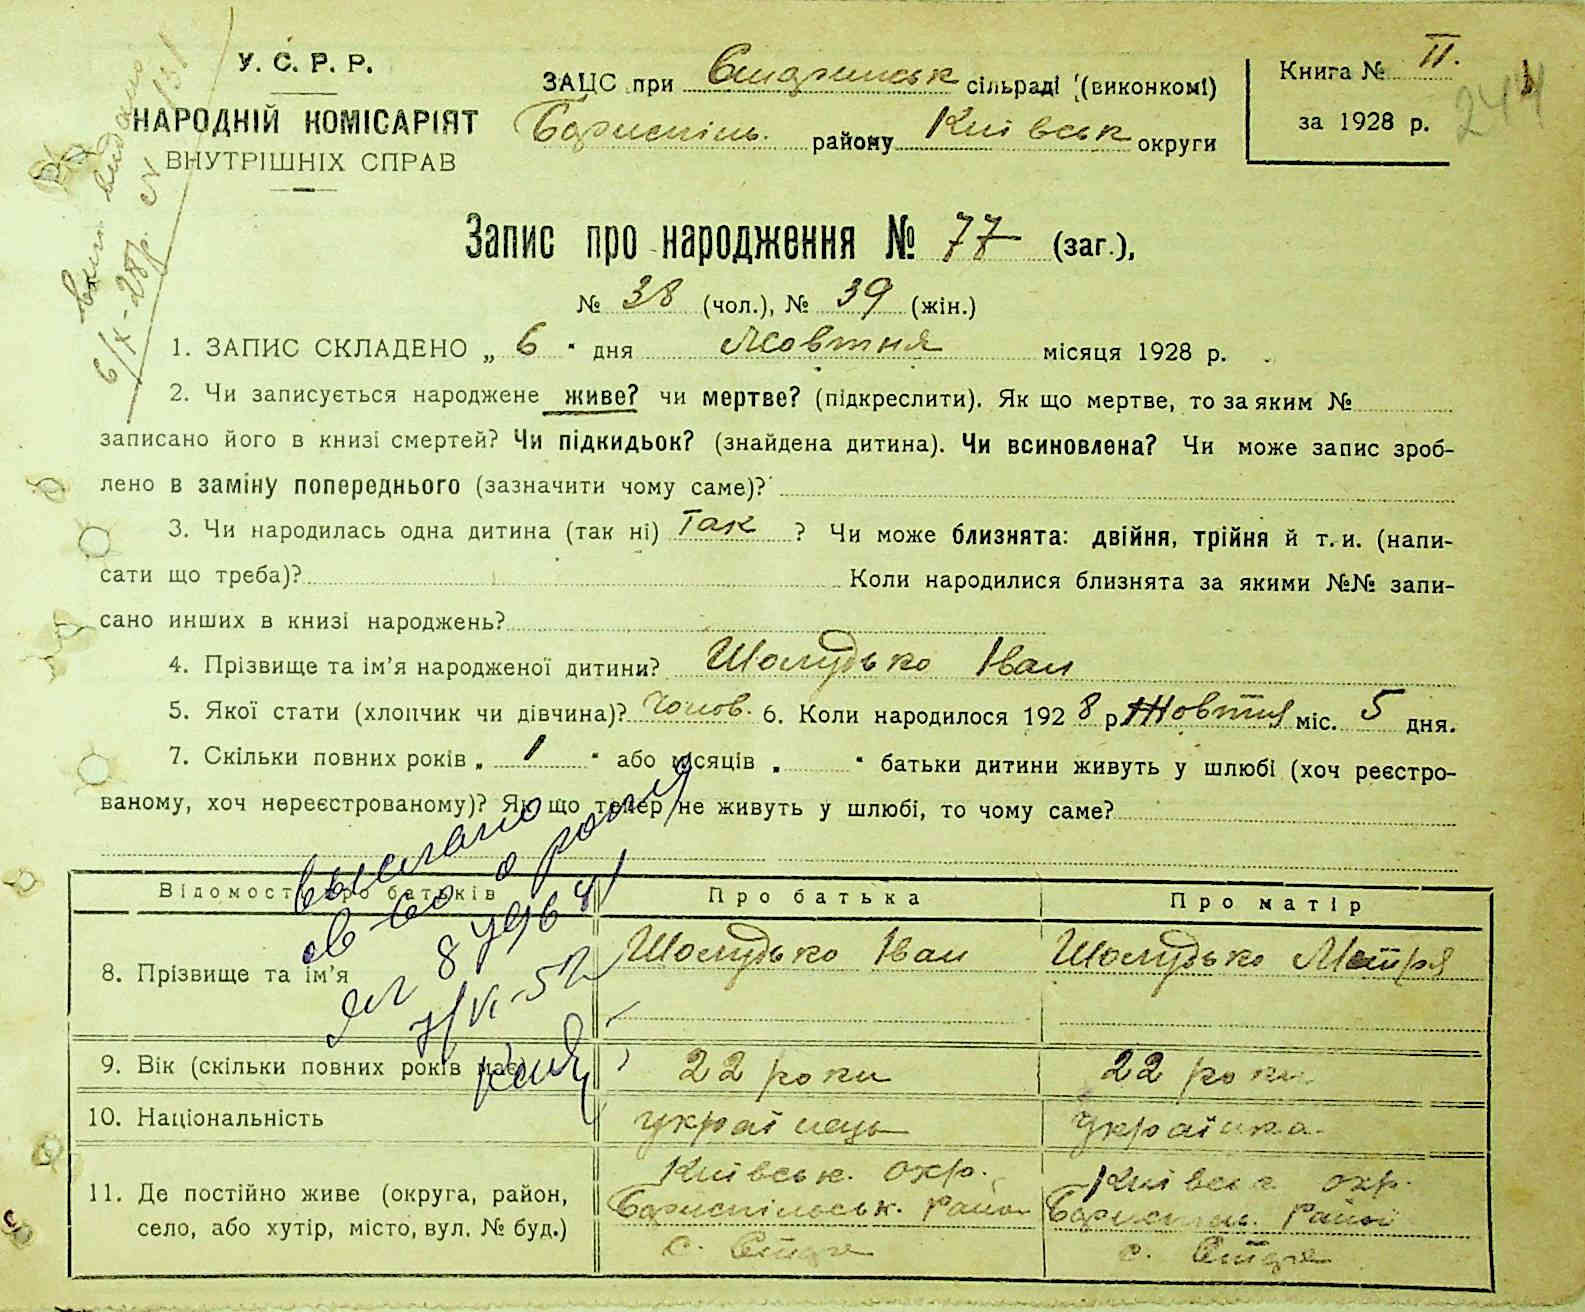 У. С. Р. Р.
НАРОДНІЙ КОМІСАРІЯТ
ВНУТРІШНІХ СПРАВ
ЗАЦС при Старинськ сільраді (виконкомі)
Бориспіль. району Київськ округи
Книга № II.
за 1928 р.
244
6/X-28р. № 131
Запис про народження № 77 (заг.),
№ 38 (чол.), № 39 (жін.)
1. ЗАПИС СКЛАДЕНО „ 6 " дня Жовтня місяця 1928 р.
2. Чи записується народжене живе? чи мертве? (підкреслити). Як що мертве, то за яким №
записано його в книзі смертей? Чи підкидьок? (знайдена дитина). Чи всиновлена? Чи може запис зроб-
лено в заміну попереднього (зазначити чому саме)?
3. Чи народилась одна дитина (так ні) Так ? Чи може близнята: двійня, трійня й т. и. (напи-
сати що треба)? Коли народилися близнята за якими №№ запи-
сано инших в книзі народжень?
4. Прізвище та ім'я народженої дитини? Шолудько Іван
5. Якої стати (хлопчик чи дівчина)? Чолов. 6. Коли народилося 1928 р. Жовтня міс. 5 дня.
7. Скільки повних років „ 1 " або місяців „ " батьки дитини живуть у шлюбі (хоч реєстро-
ваному, хоч нереєстрованому)? Як що тепер не живуть у шлюбі, то чому саме?
выслано
св-во о рожд
7/VI-52
Відомості про батьків Про батька Про матір
8. Прізвище та ім'я Шолудько Іван Шолудько Мотря
9. Вік (скільки повних років має) 22 роки 22 роки
10. Національність українець Українка
11. Де постійно живе (округа, район, село, або хутір, місто, вул. № буд.) Київськ. окр. Бориспільськ. район с. Старе Київськ окр. Бориспіль. район с. Старе